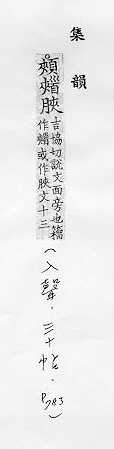 集韻
頰脥
吉協切說文面旁也籀
作或作脥文十三
(入聲·三十帖·P783)